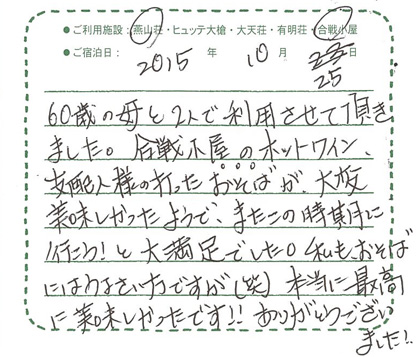 ●ご利用施設:燕山荘・ヒュッテ大槍・大天荘・有明荘・合戦小屋
●ご宿泊日: 2015 年 10 月 25 日
60歳の母と2人で利用させて頂き
ました。合戦小屋のホットワイン、
支配人様の打ったおそばが、大変
美味しかったようで、またこの時期に
行こう!と大満足でした。私も、おそば
にはうるさい方ですが(笑)本当に最高
に美味しかったです!!ありがとうござい
ました!!